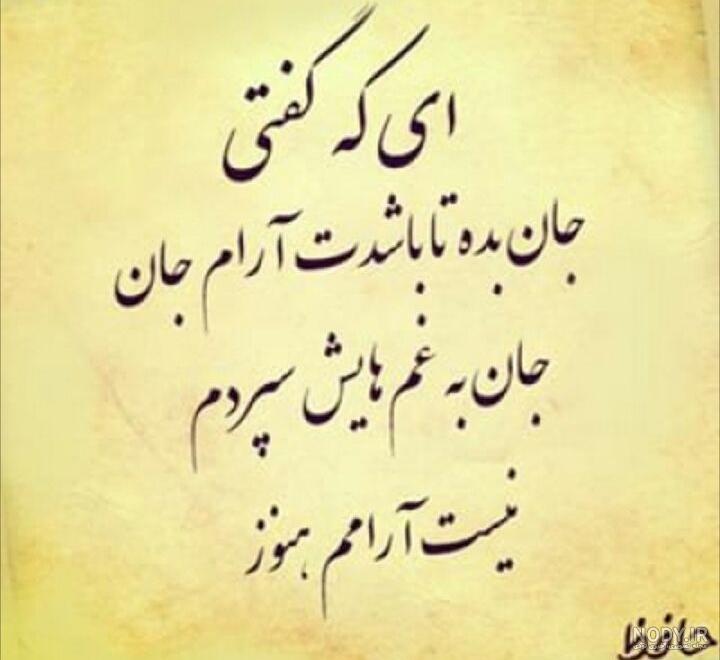 ای که گفتی
جان بده تا باشدت آرام جان
جان به غم هایش سپردم
نیست آرامم هنوز
حافظ
NODY.IR